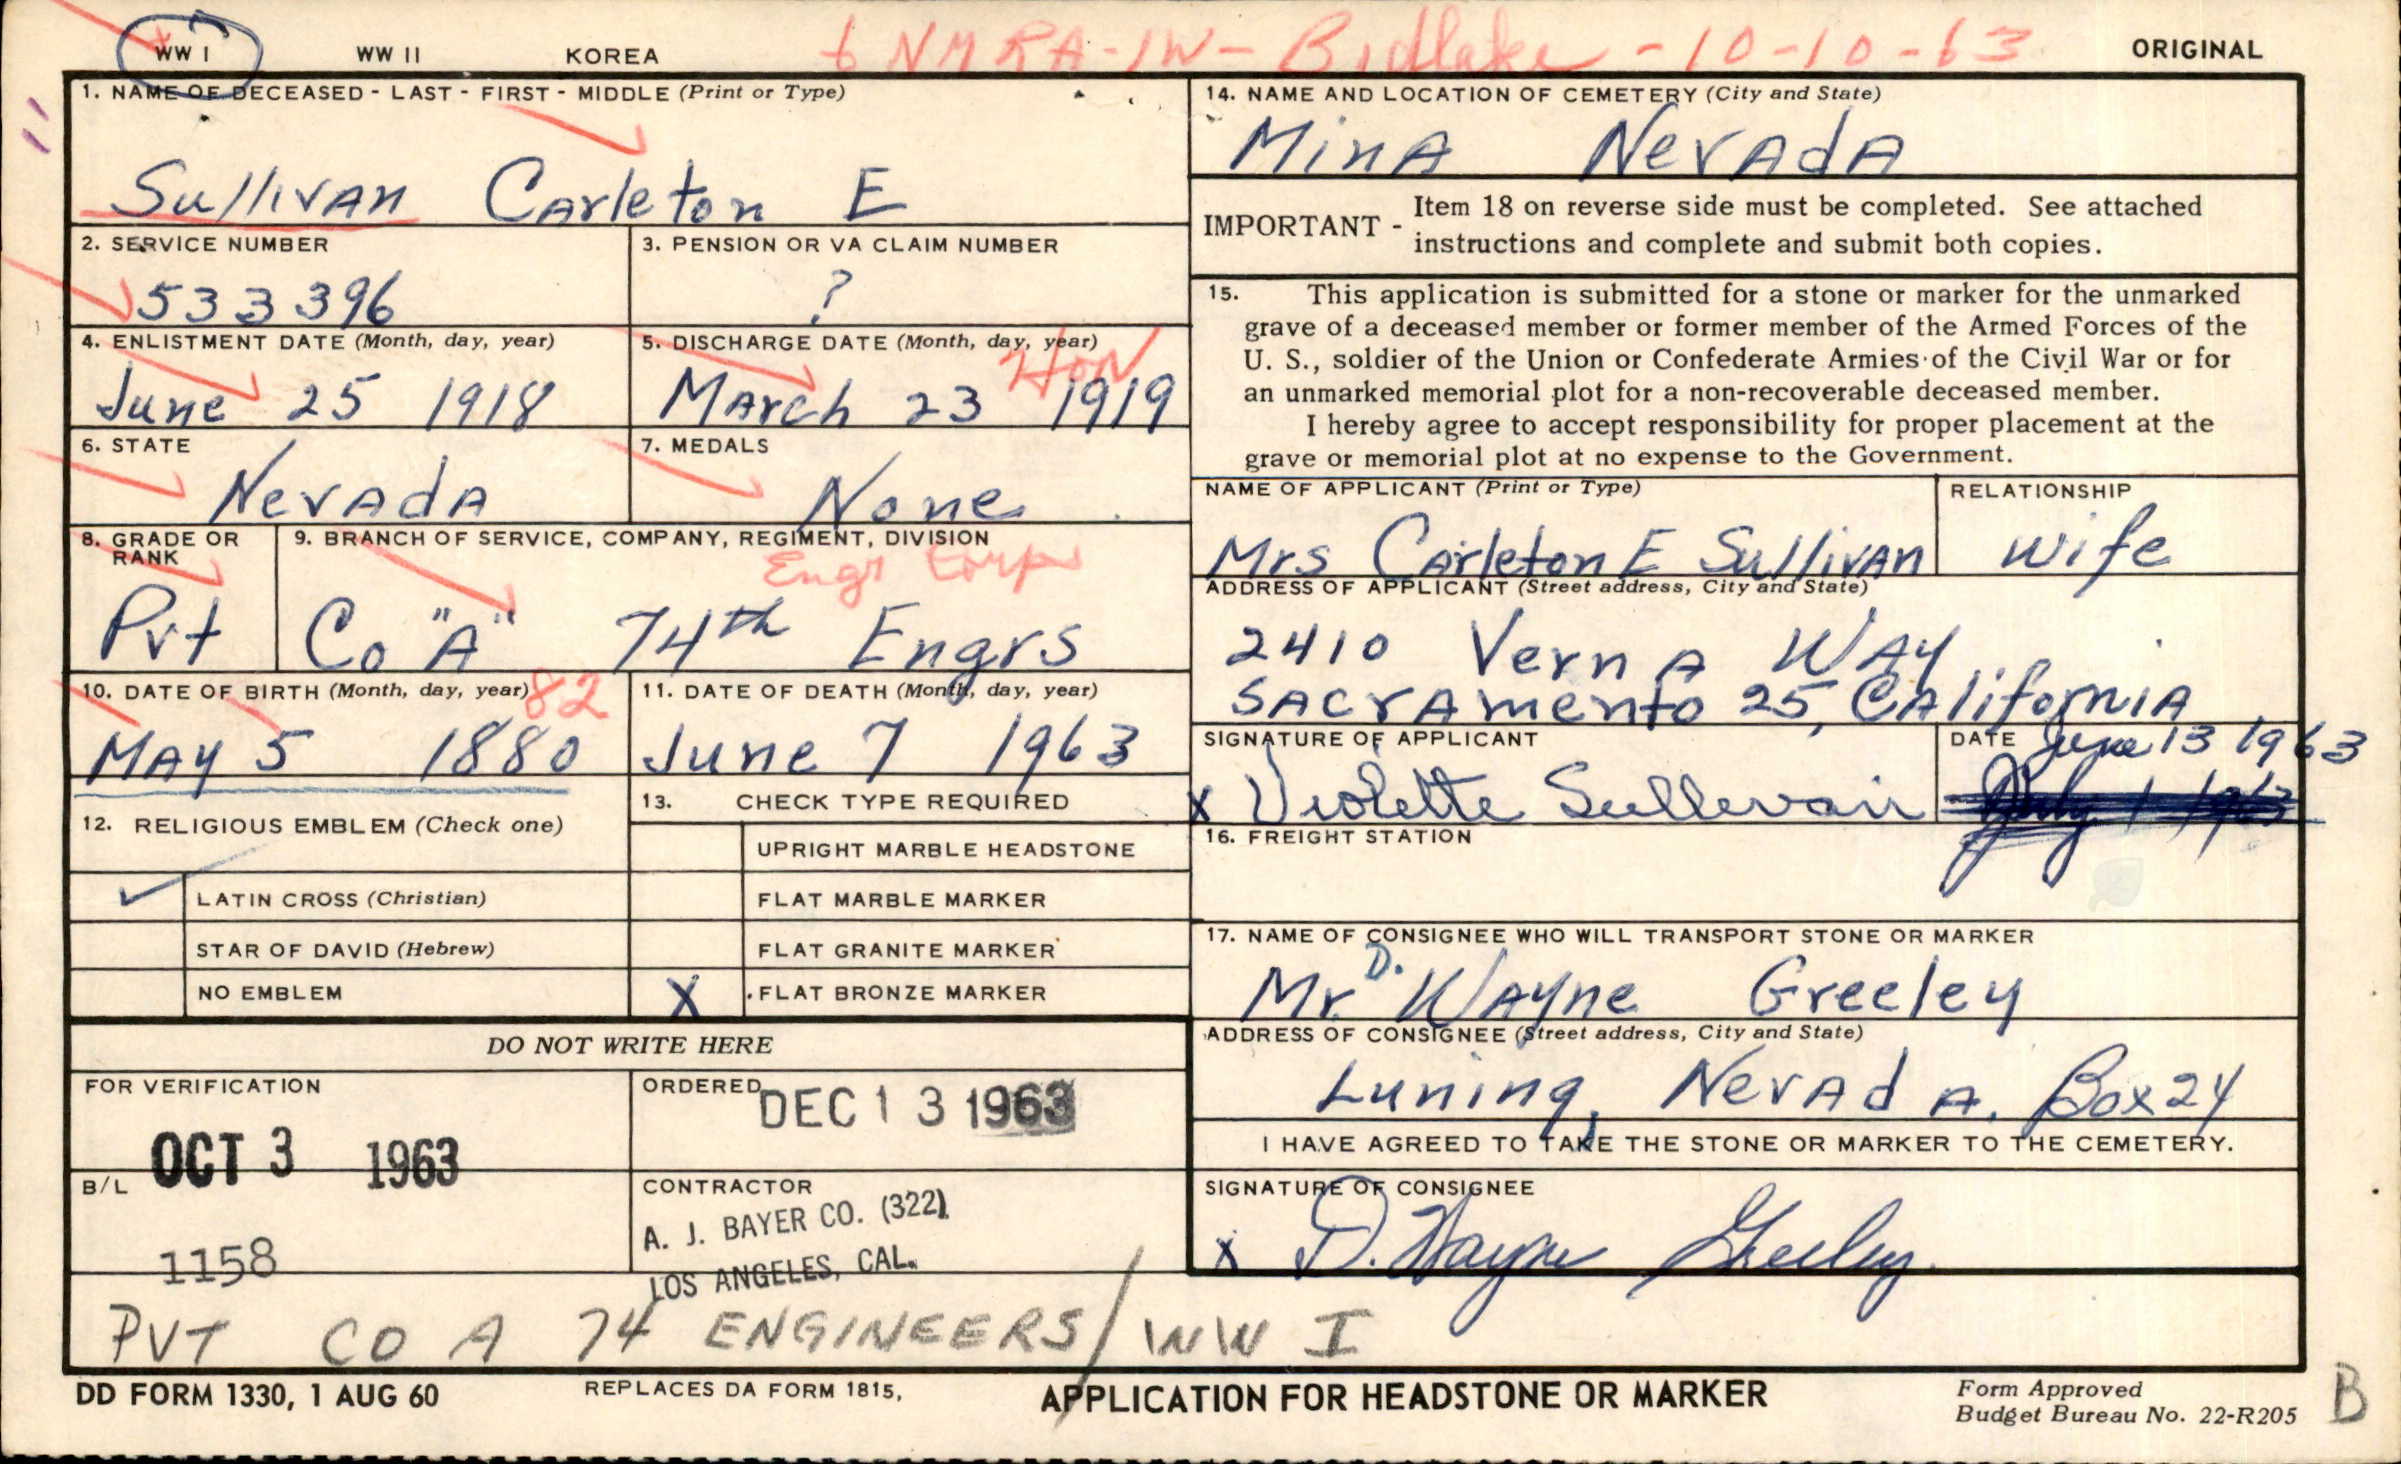 WW I WW II KOREA NMRA-IW-Bidlake-10-10-63 ORIGINAL
1. NAME OF DECEASED - LAST - FIRST - MIDDLE (Print or Type)
Sullivan Carleton E
2. SERVICE NUMBER
533396
3. PENSION OR VA CLAIM NUMBER
?
4. ENLISTMENT DATE (Month, day, year)
June 25 1918
5. DISCHARGE DATE (Month, day, year)
Hon
March 23 1919
6. STATE
Nevada
7. MEDALS
None
8. GRADE OR
RANK
Pvt
9. BRANCH OF SERVICE, COMPANY, REGIMENT, DIVISION
Engr Corps
Co "A" 74th Engrs
10. DATE OF BIRTH (Month, day, year) 82
May 5 1880
11. DATE OF DEATH (Month, day, year)
June 7 1963
12. RELIGIOUS EMBLEM (Check one)
✓ LATIN CROSS (Christian)
STAR OF DAVID (Hebrew)
NO EMBLEM
13. CHECK TYPE REQUIRED
UPRIGHT MARBLE HEADSTONE
FLAT MARBLE MARKER
FLAT GRANITE MARKER
X FLAT BRONZE MARKER
DO NOT WRITE HERE
FOR VERIFICATION
OCT 3 1963
ORDERED
DEC 13 1963
B/L
1158
CONTRACTOR
A. J. BAYER CO. (322)
LOS ANGELES, CAL.
PVT CO A 74 ENGINEERS/WW I
14. NAME AND LOCATION OF CEMETERY (City and State)
Mina Nevada
IMPORTANT - Item 18 on reverse side must be completed. See attached
instructions and complete and submit both copies.
15. This application is submitted for a stone or marker for the unmarked
grave of a deceased member or former member of the Armed Forces of the
U. S., soldier of the Union or Confederate Armies of the Civil War or for
an unmarked memorial plot for a non-recoverable deceased member.
I hereby agree to accept responsibility for proper placement at the
grave or memorial plot at no expense to the Government.
NAME OF APPLICANT (Print or Type)
Mrs Carleton E Sullivan
RELATIONSHIP
wife
ADDRESS OF APPLICANT (Street address, City and State)
2410 Verna Way
Sacramento 25, California
SIGNATURE OF APPLICANT
x Violette Sullivan
DATE June 13 1963
July 1 1963
16. FREIGHT STATION
17. NAME OF CONSIGNEE WHO WILL TRANSPORT STONE OR MARKER
Mr D. Wayne Greeley
ADDRESS OF CONSIGNEE (Street address, City and State)
Luning, Nevada. Box 24
I HAVE AGREED TO TAKE THE STONE OR MARKER TO THE CEMETERY.
SIGNATURE OF CONSIGNEE
x D. Wayne Greeley
DD FORM 1330, 1 AUG 60 REPLACES DA FORM 1815, APPLICATION FOR HEADSTONE OR MARKER Form Approved
Budget Bureau No. 22-R205
B